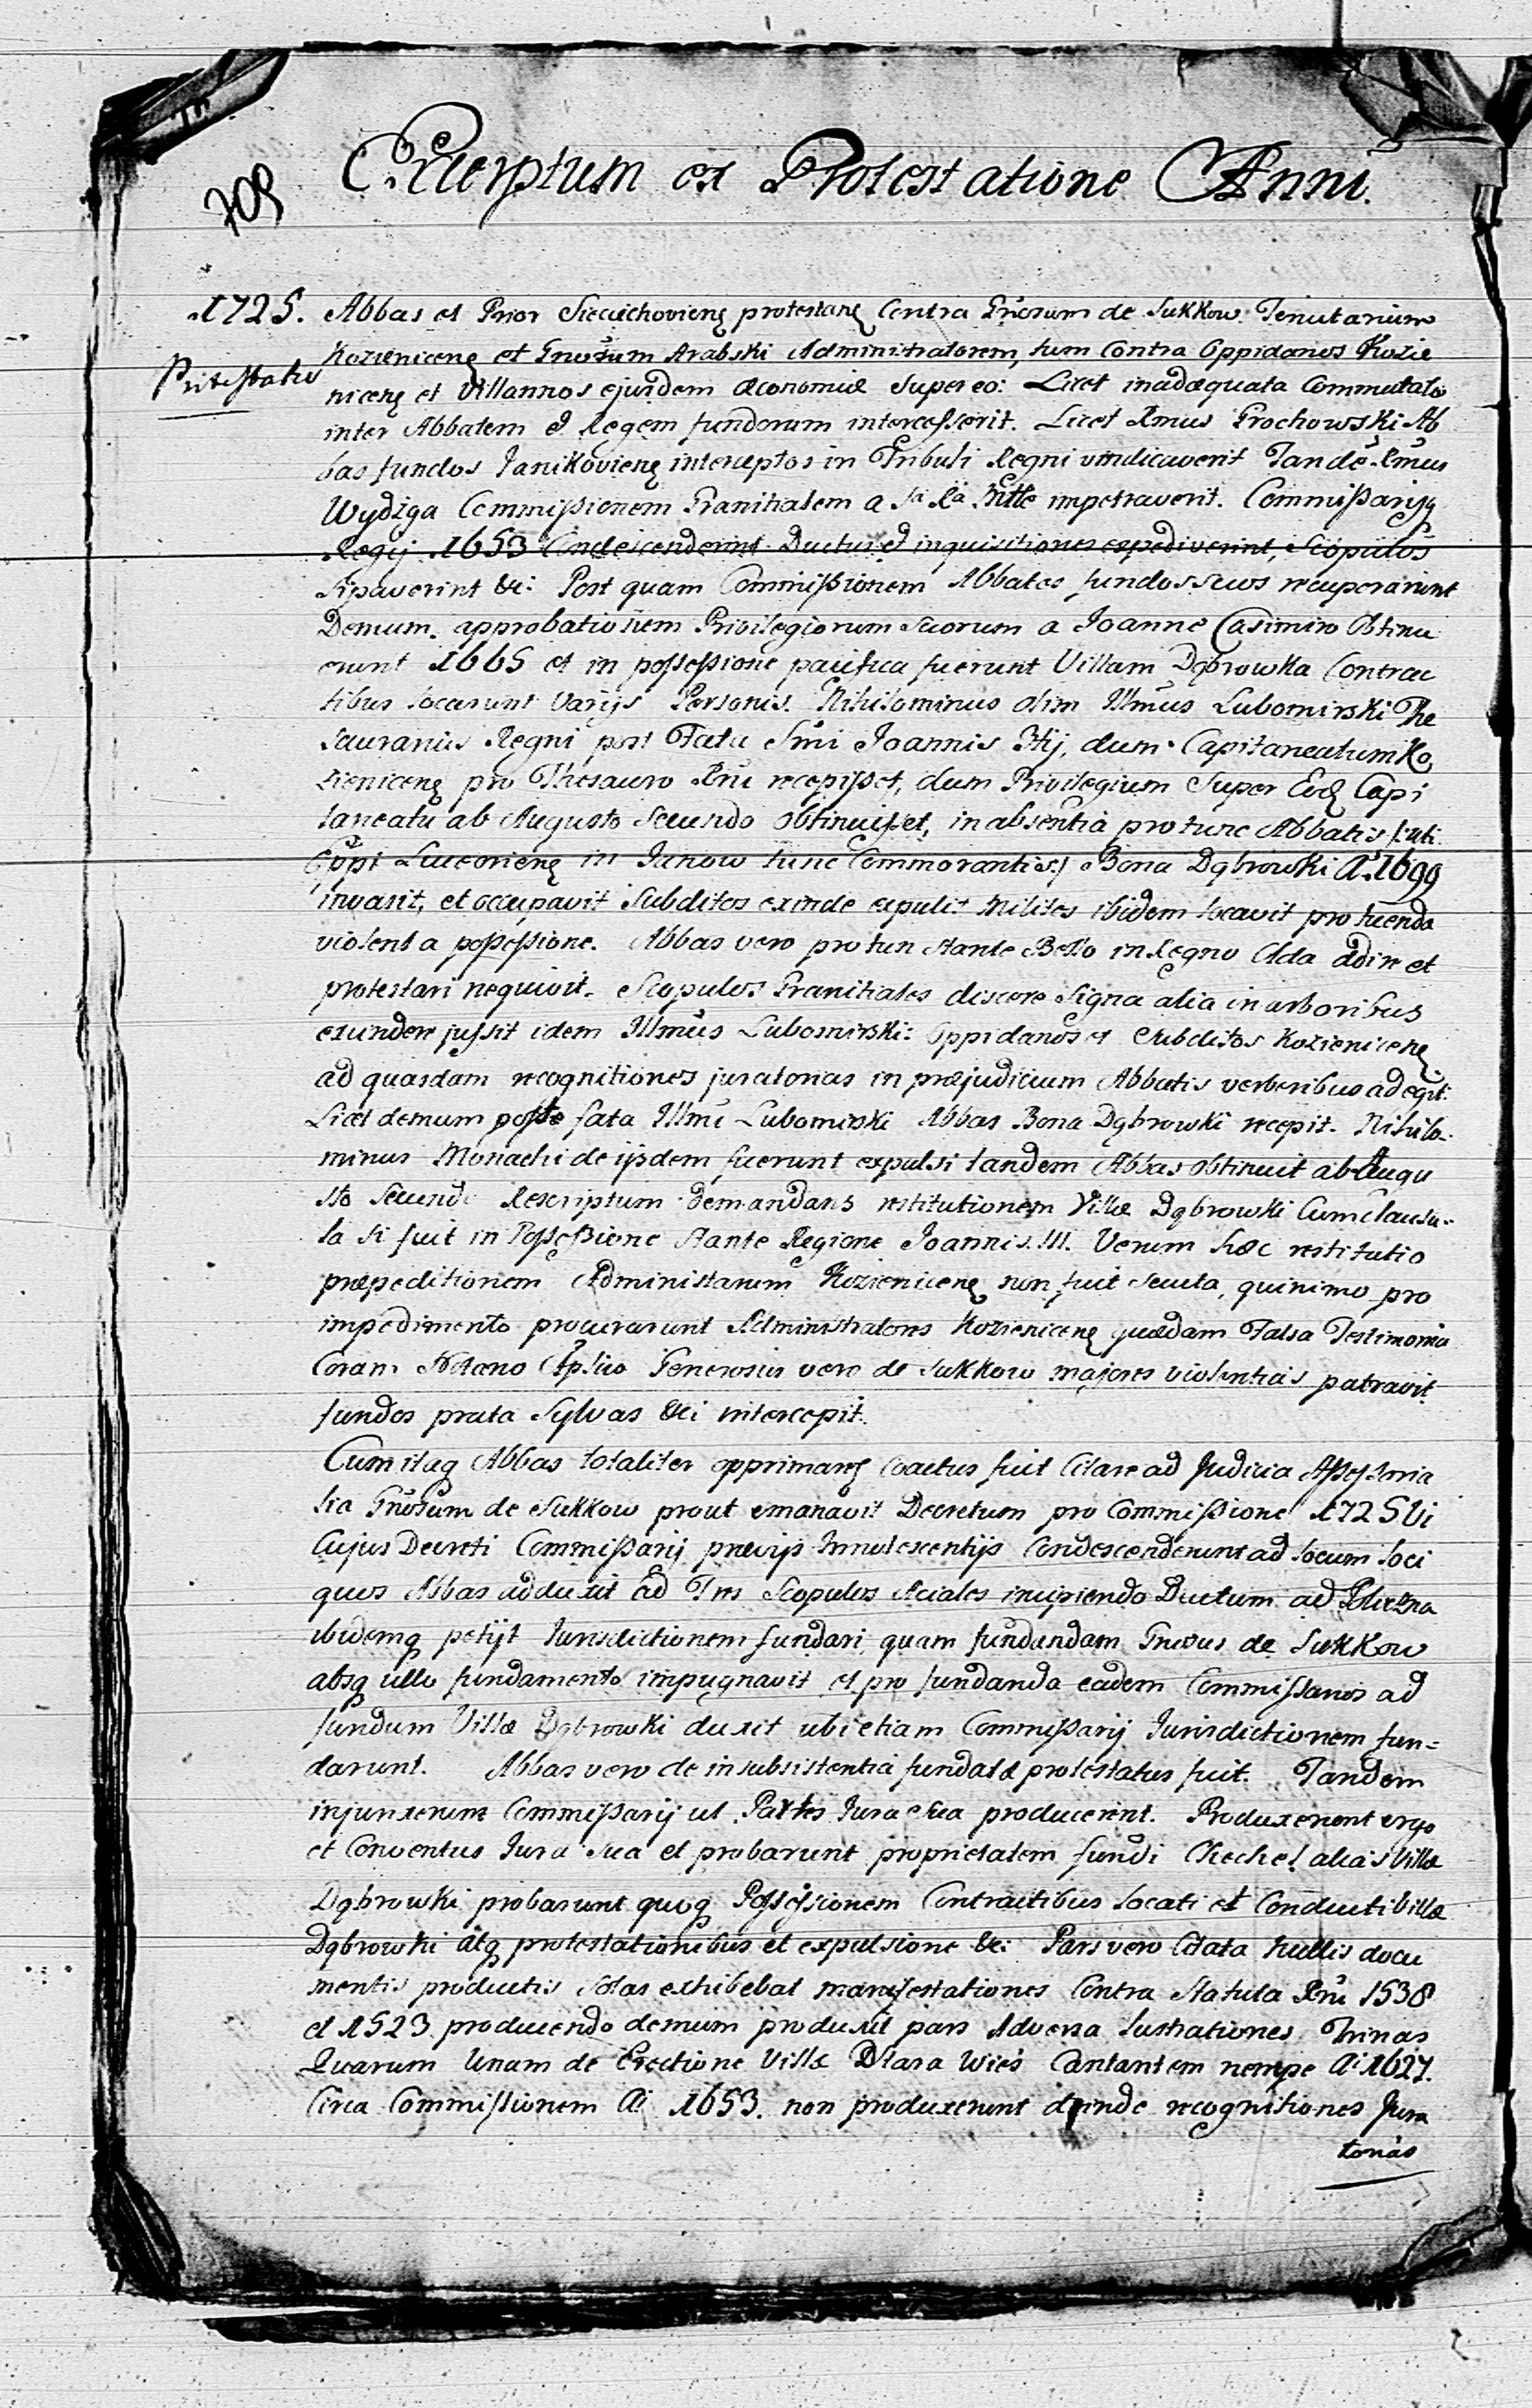 709
Excerptum ex Protestatione Anni.
1725. Abbas et Prior Sieciechoviens protestans Contra Gnosum de Sukkow Tenutarium
Protestatio
Kozieniceng et Gnosum Arabski Administratorem, tum Contra Oppidanos Kozie
niceng et Villannos ejusdem œconomiæ super eo: Licet inadæquata Commutatio
inter Abbatem et Regem fundorum intercesserit. Licet Rmus Grochowski Ab
bas fundos Janikovieng interceptos in Tribuli Regni vindicaverit Tandẽ Rmus
Wydzga Commissionem Granitialem a Sa Ra Mtte impetraverit. Commissarijq
Regij 1653 Condescenderint Ductus et inquisitiones expediverint, Scopulos
sipaverint &c: Post quam Commissionem Abbates fundos suos recuperarunt
Demum approbationem Privilegiorum suorum a Joanne Casimiro Obtinu
erunt 1665 et in possessione pacifica fuerunt Villam Dąbrowka Contrac
tibus locarunt Varijs Personis. Nihilominus olim Illmus Lubomirski The
saurarius Regni post Fata Smi Joannis IIIij, dum Capitaneatum Ko
zieniceng pro Thesauro Rni recepisset, dum Privilegium Super Eod Capi
taneatu ab Augusto Secundo obtinuisset, in absentia pro tunc Abbatis /:uti
Eppi Luceorieng in Janow tunc Commorantis:/ Bona Dąbrowki A: 1699
invasit, et occupavit Subditos exinde expulit Milites ibidem locavit pro tuenda
violenta possessione. Abbas vero pro tun stante Bello in Regno Acta adire et
protestari nequivit. Scopulos Granitiales discere Signa alia in arboribus
exundere jussit idem Illmus Lubomirski: Oppidanos et Subditos Kozieniceng
ad quasdam recognitiones juratorias in præjudicium Abbatis verberibus adegit.
Licet demum poste fata Illmi Lubomirski Abbas Bona Dąbrowki recepit. Nihilo-
minus Monachi de ijsdem fuerunt expulsi tandem Abbas obtinuit ab Augu
sto Secundo Rescriptum demandans restitutionem Villæ Dąbrowki Cum Clausu-
la si fuit in Possessione stante Regione Joannis III. Verum hæc restitutio
præpeditionem Administrarum Kozieniceng non fuit secuta, quinimo pro
impedimento procurarunt Administratores Kozieniceng quædam Falsa Testimonia
Coram Notario Aplico Generosus vero de Sukkow majores violentias patravit
fundos prata Sylvas &c: intercepit.
Cum itaq Abbas totaliter opprimareg Coactus fuit Citare ad Judicia Assessoria
lia Gnosum de Sukkow prout emanavit Decretum pro Commissione 1725 Vi
Cujus Decreti Commissarij prævijs Innotescentijs Condescenderunt ad locum loci
quos Abbas adduxit ad Tres Scopulos Aciales incipiendo Ductum ad
ibidemq petijt Jurisdictionem fundari, quam fundandam Gnosus de Sukkow
absq ullo fundamento impugnavit et pro fundanda eadem Commissarios ad
fundum Villæ Dąbrowki duxit ubi etiam Commissarij Jurisdictionem fun=
darunt. Abbas vero de insubsistentia fundatæ protestatus fuit. Tandem
injunxerunt Commissarij ut Partes Jura Sua producerent. Produxerunt ergo
et Conventus Jura Sua et probarunt proprietatem fundi Chechel alias Villæ
Dąbrowki probarunt quoq Possessionem Contractibus locati et Conducti Villæ
Dąbrowki atq protestationibus et expulsione &c: Pars vero Citata nullis docu
mentis productis solas exhibebat manifestationes Contra Statuta Rni 1538
et 1523 producendo demum produxit pars Adversa lustrationes Trinas
Quarum Unam de Erectione Villæ Stara Wies Cantantem nempe A: 1627.
Circa Commissionem A: 1653. non produxerunt deinde recognitiones Jura
torias